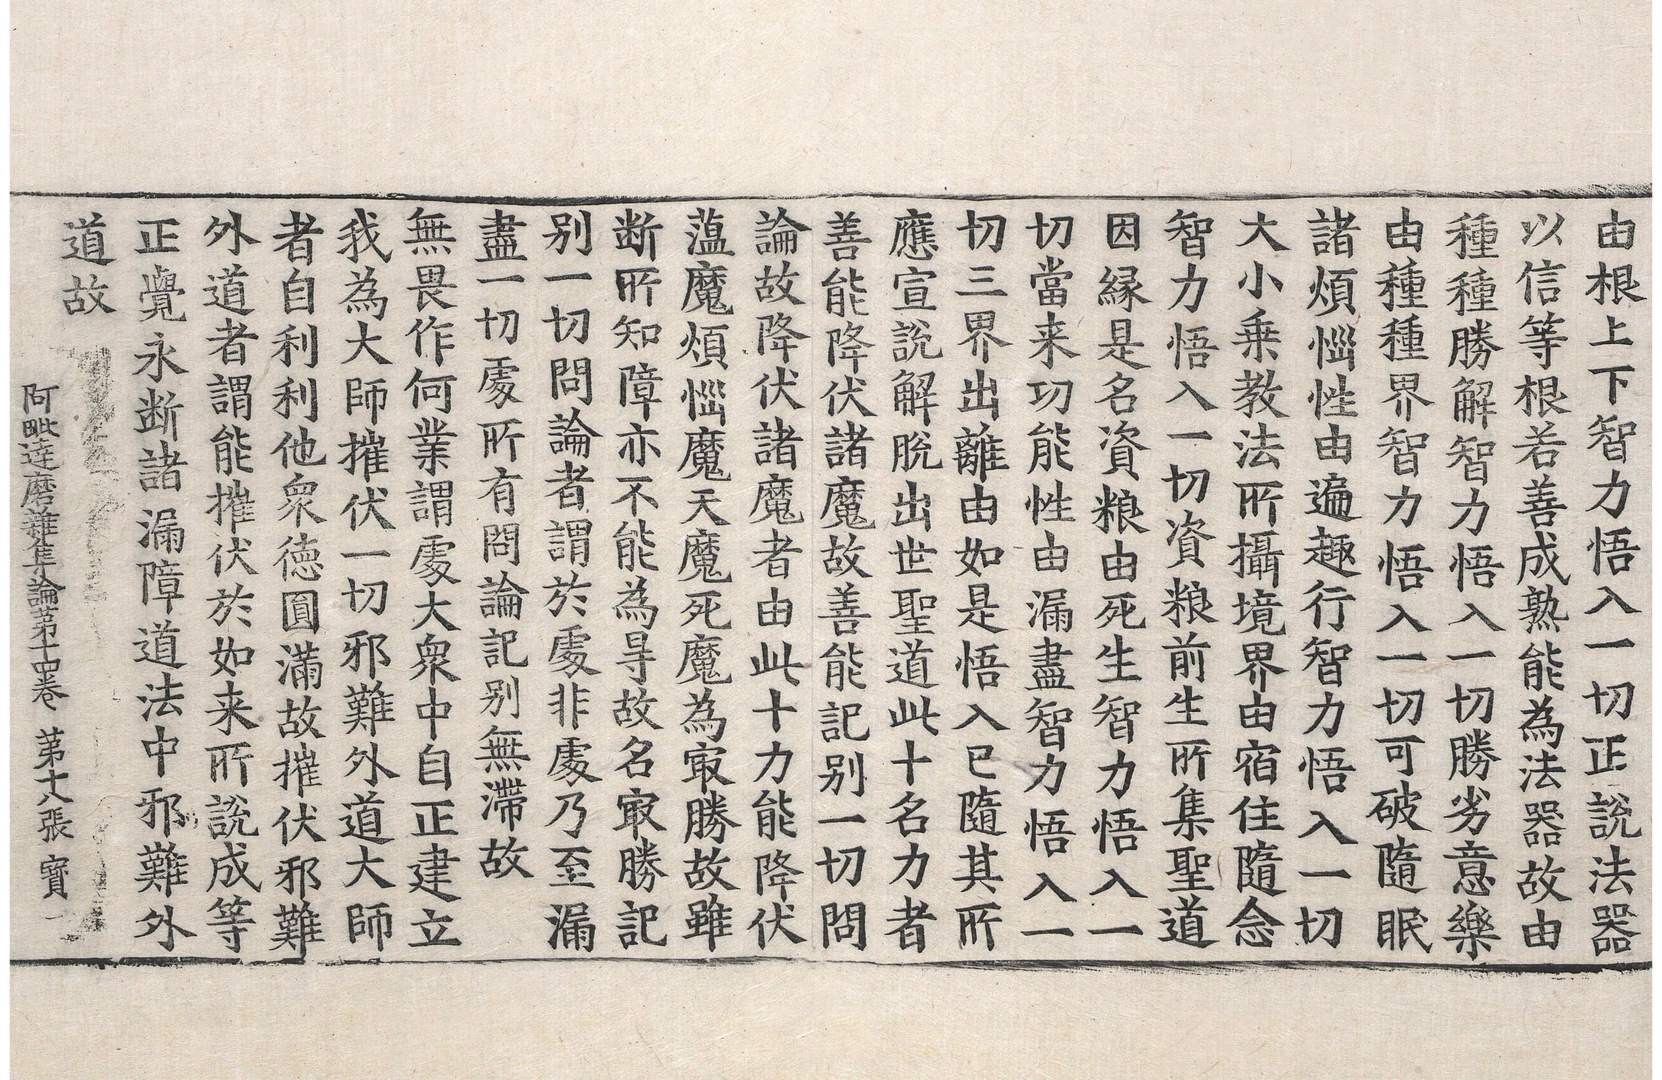 由根上下智力悟入一切正說法器
以信等根若善成熟能為法器故由
種種勝解智力悟入一切勝劣意樂
由種種界智力悟入一切可破隨眠
諸煩惱性由遍趣行智力悟入一切
大小乗教法所攝境界由宿住隨念
智力悟入一切資粮前生所集聖道
因縁是名資粮由死生智力悟入一
切當来功能性由漏盡智力悟入一
切三界出離由如是悟入已隨其所
應宣說解脫出世聖道此十名力者
善能降伏諸魔故善能記别一切問
論故降伏諸魔者由此十力能降伏
薀魔煩惱魔天魔死魔為㝡勝故雖
断所知障亦不能為㝵故名㝡勝記
别一切問論者謂於處非處乃至漏
盡一切處所有問論記别無滯故
無畏作何業謂處大衆中自正建立
我為大師摧伏一切邪難外道大師
者自利利他衆德圓滿故摧伏邪難
外道者謂能摧伏於如来所說成等
正覺永断諸漏障道法中邪難外
道故
阿毗達磨雜集論第十四卷 第十八張 寳